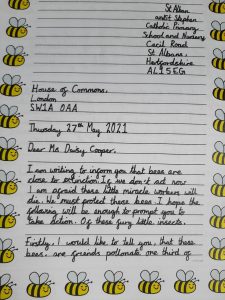 St Alban
and St Stephen
Catholic Primary
School and Nursery
Cecil Road
St Albans,
Hertfordshire
AL1 5EG
House of Commons,
London
SW1A 0AA
Thursday 27th May 2021
Dear Ms. Daisy Cooper,
I am writing to inform you that bees are
close to extinction. If we don't act now
I am afraid these little miracle workers will
die. We must protect these bees. I hope the
following will be enough to prompt you to
take action. Of these fury little insects.
Firstly, I would like to tell you, that these
bees, are friends pollonate one third of